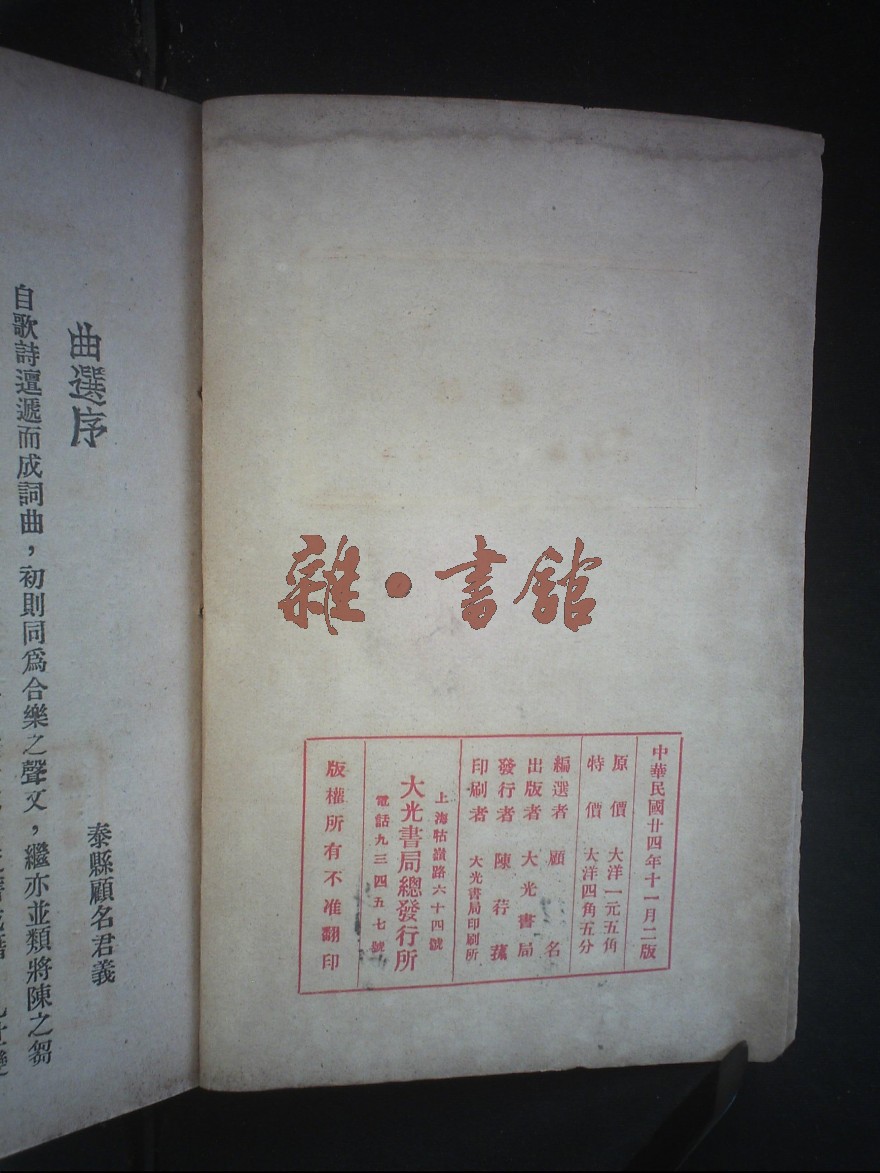 中華民國廿四年十一月二版
原價 大洋一元五角
特價 大洋四角五分
編選者 顧名
出版者 大光書局
發行者 陳荇蓀
印刷者 大光書局印刷所
上海牯嶺路六十四號
大光書局總發行所
電話九三四五七號
版權所有不准翻印
雜·書館
曲選序
泰縣顧名君義
自歌詩邅遞而成詞曲，初則同爲合樂之聲文，繼亦並類將陳之芻